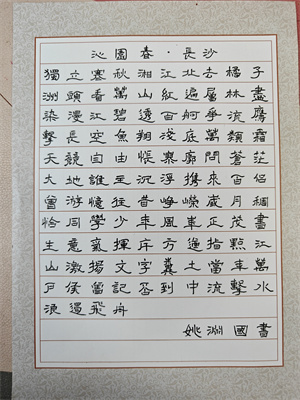 沁園春·長沙
獨立寒秋湘江北去橘子
洲頭看萬山紅遍層林盡
染漫江碧透百舸爭流鷹
擊長空魚翔淺底萬類霜
天競自由悵寥廓問蒼茫
大地誰主沉浮攜來百侶
曾游憶往昔崢嶸歲月稠
恰同學少年風華正茂書
生意氣揮斥方遒指點江
山激揚文字糞土當年萬
戶侯曾記否到中流擊水
浪遏飛舟
姚淵國書